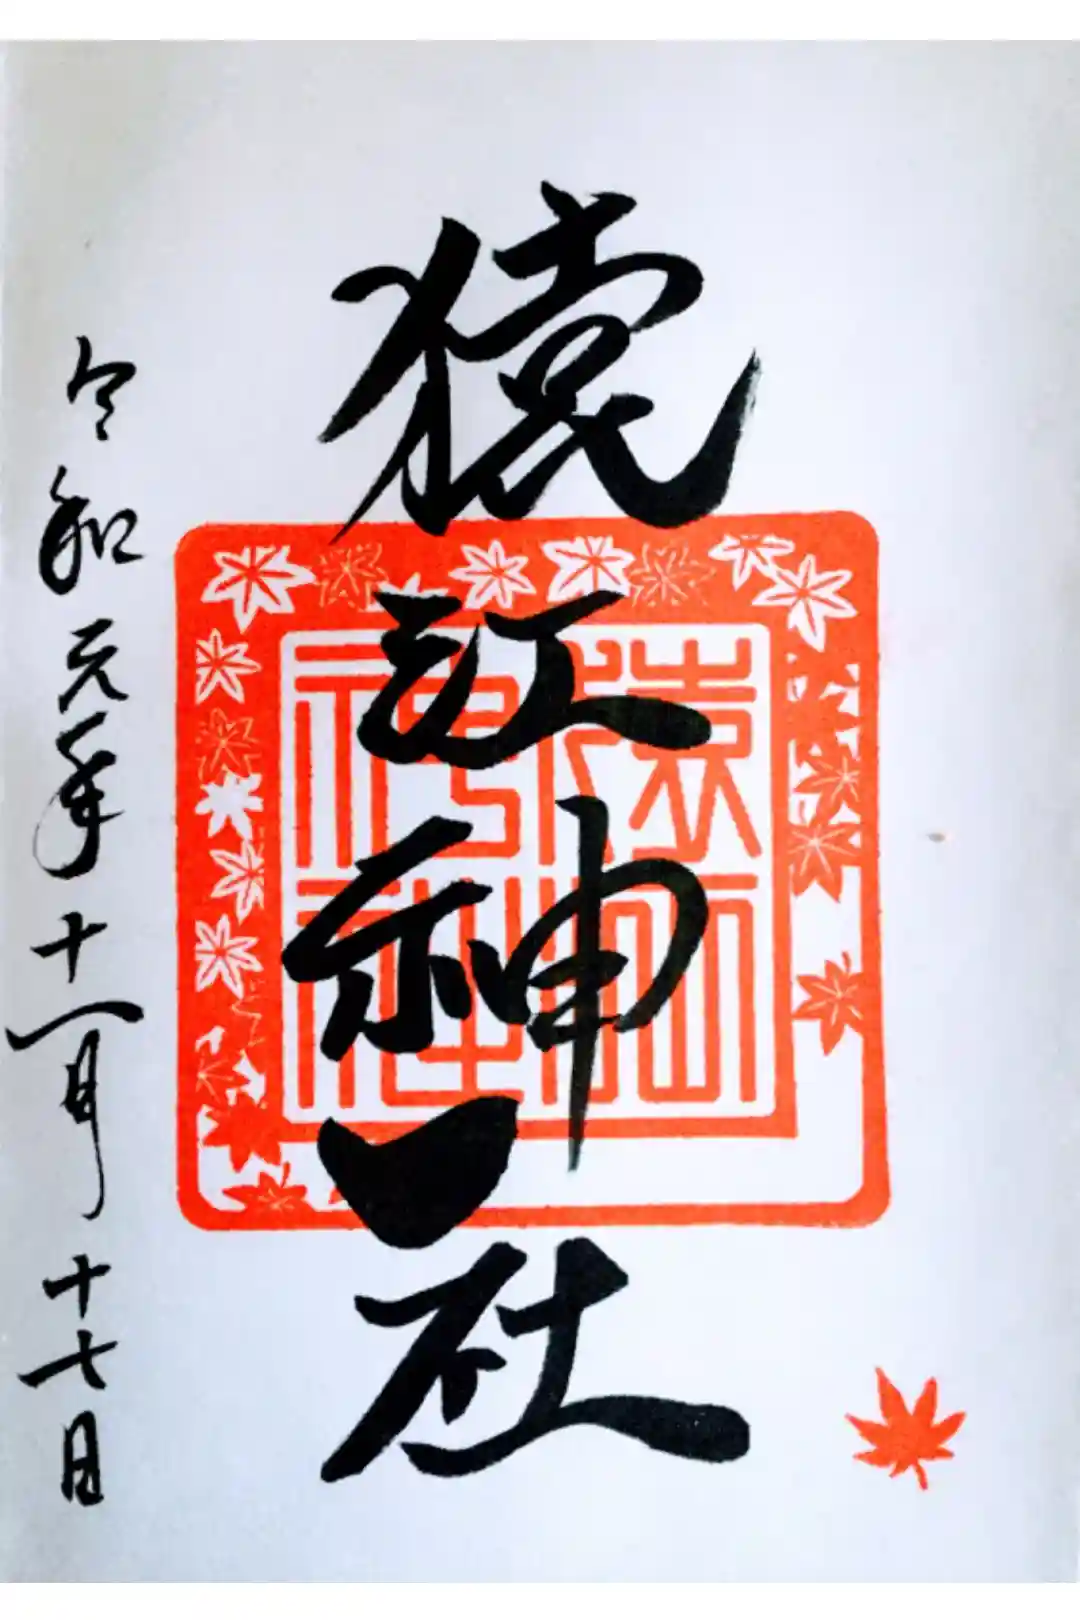 猿江神社
猿江
神社
令和元年十一月十七日